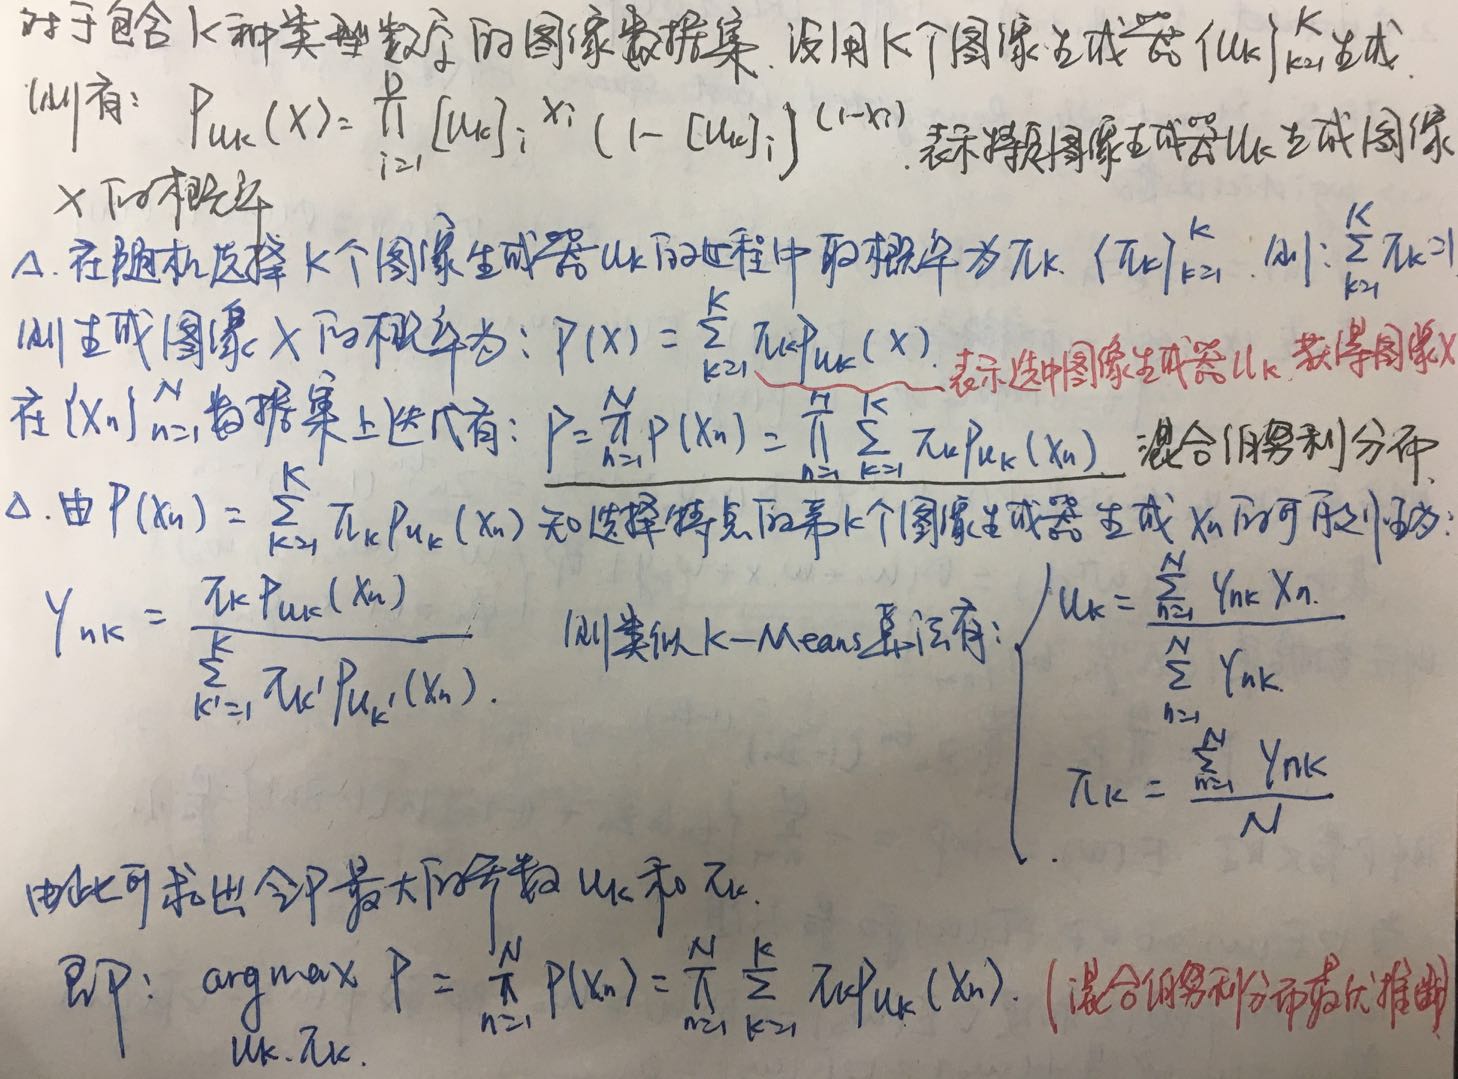 对于包含K种类型数字的图像数据集.设用K个图像生成器{μk}_{k=1}^{K}生成.
则有: P_{μk}(X)=∏_{i=1}^{D}[μk]_i^{xi}(1-[μk]_i)^{(1-xi)}.表示特定图像生成器μk生成图像
X的概率
Δ.在随机选择K个图像生成器μk的过程中取概率为πk.{πk}_{k=1}^{K}.则:∑_{k=1}^{K}πk=1
则生成图像X的概率为:P(X)=∑_{k=1}^{K}πkP_{μk}(X).表示选中图像生成器μk.获得图像X
在{Xn}_{n=1}^{N}数据集上迭代有:P=∏_{n=1}^{N}P(Xn)=∏_{n=1}^{N}∑_{k=1}^{K}πkP_{μk}(Xn).混合伯努利分布.
Δ.由P(Xn)=∑_{k=1}^{K}πkP_{μk}(Xn)知选择特点的第K个图像生成器生成Xn的可能性为:
γnk=πkP_{μk}(Xn)/∑_{k'=1}^{K}πk'P_{μk'}(Xn). 则类似K-Means算法有: μk=∑_{n=1}^{N}γnkXn./∑_{n=1}^{N}γnk.
πk=∑_{n=1}^{N}γnk/N
由此可求出令P最大的参数μk和πk.
即P: argmax_{μk.πk.} P=∏_{n=1}^{N}P(Xn)=∏_{n=1}^{N}∑_{k=1}^{K}πkP_{μk}(Xn).(混合伯努利分布最优推断)